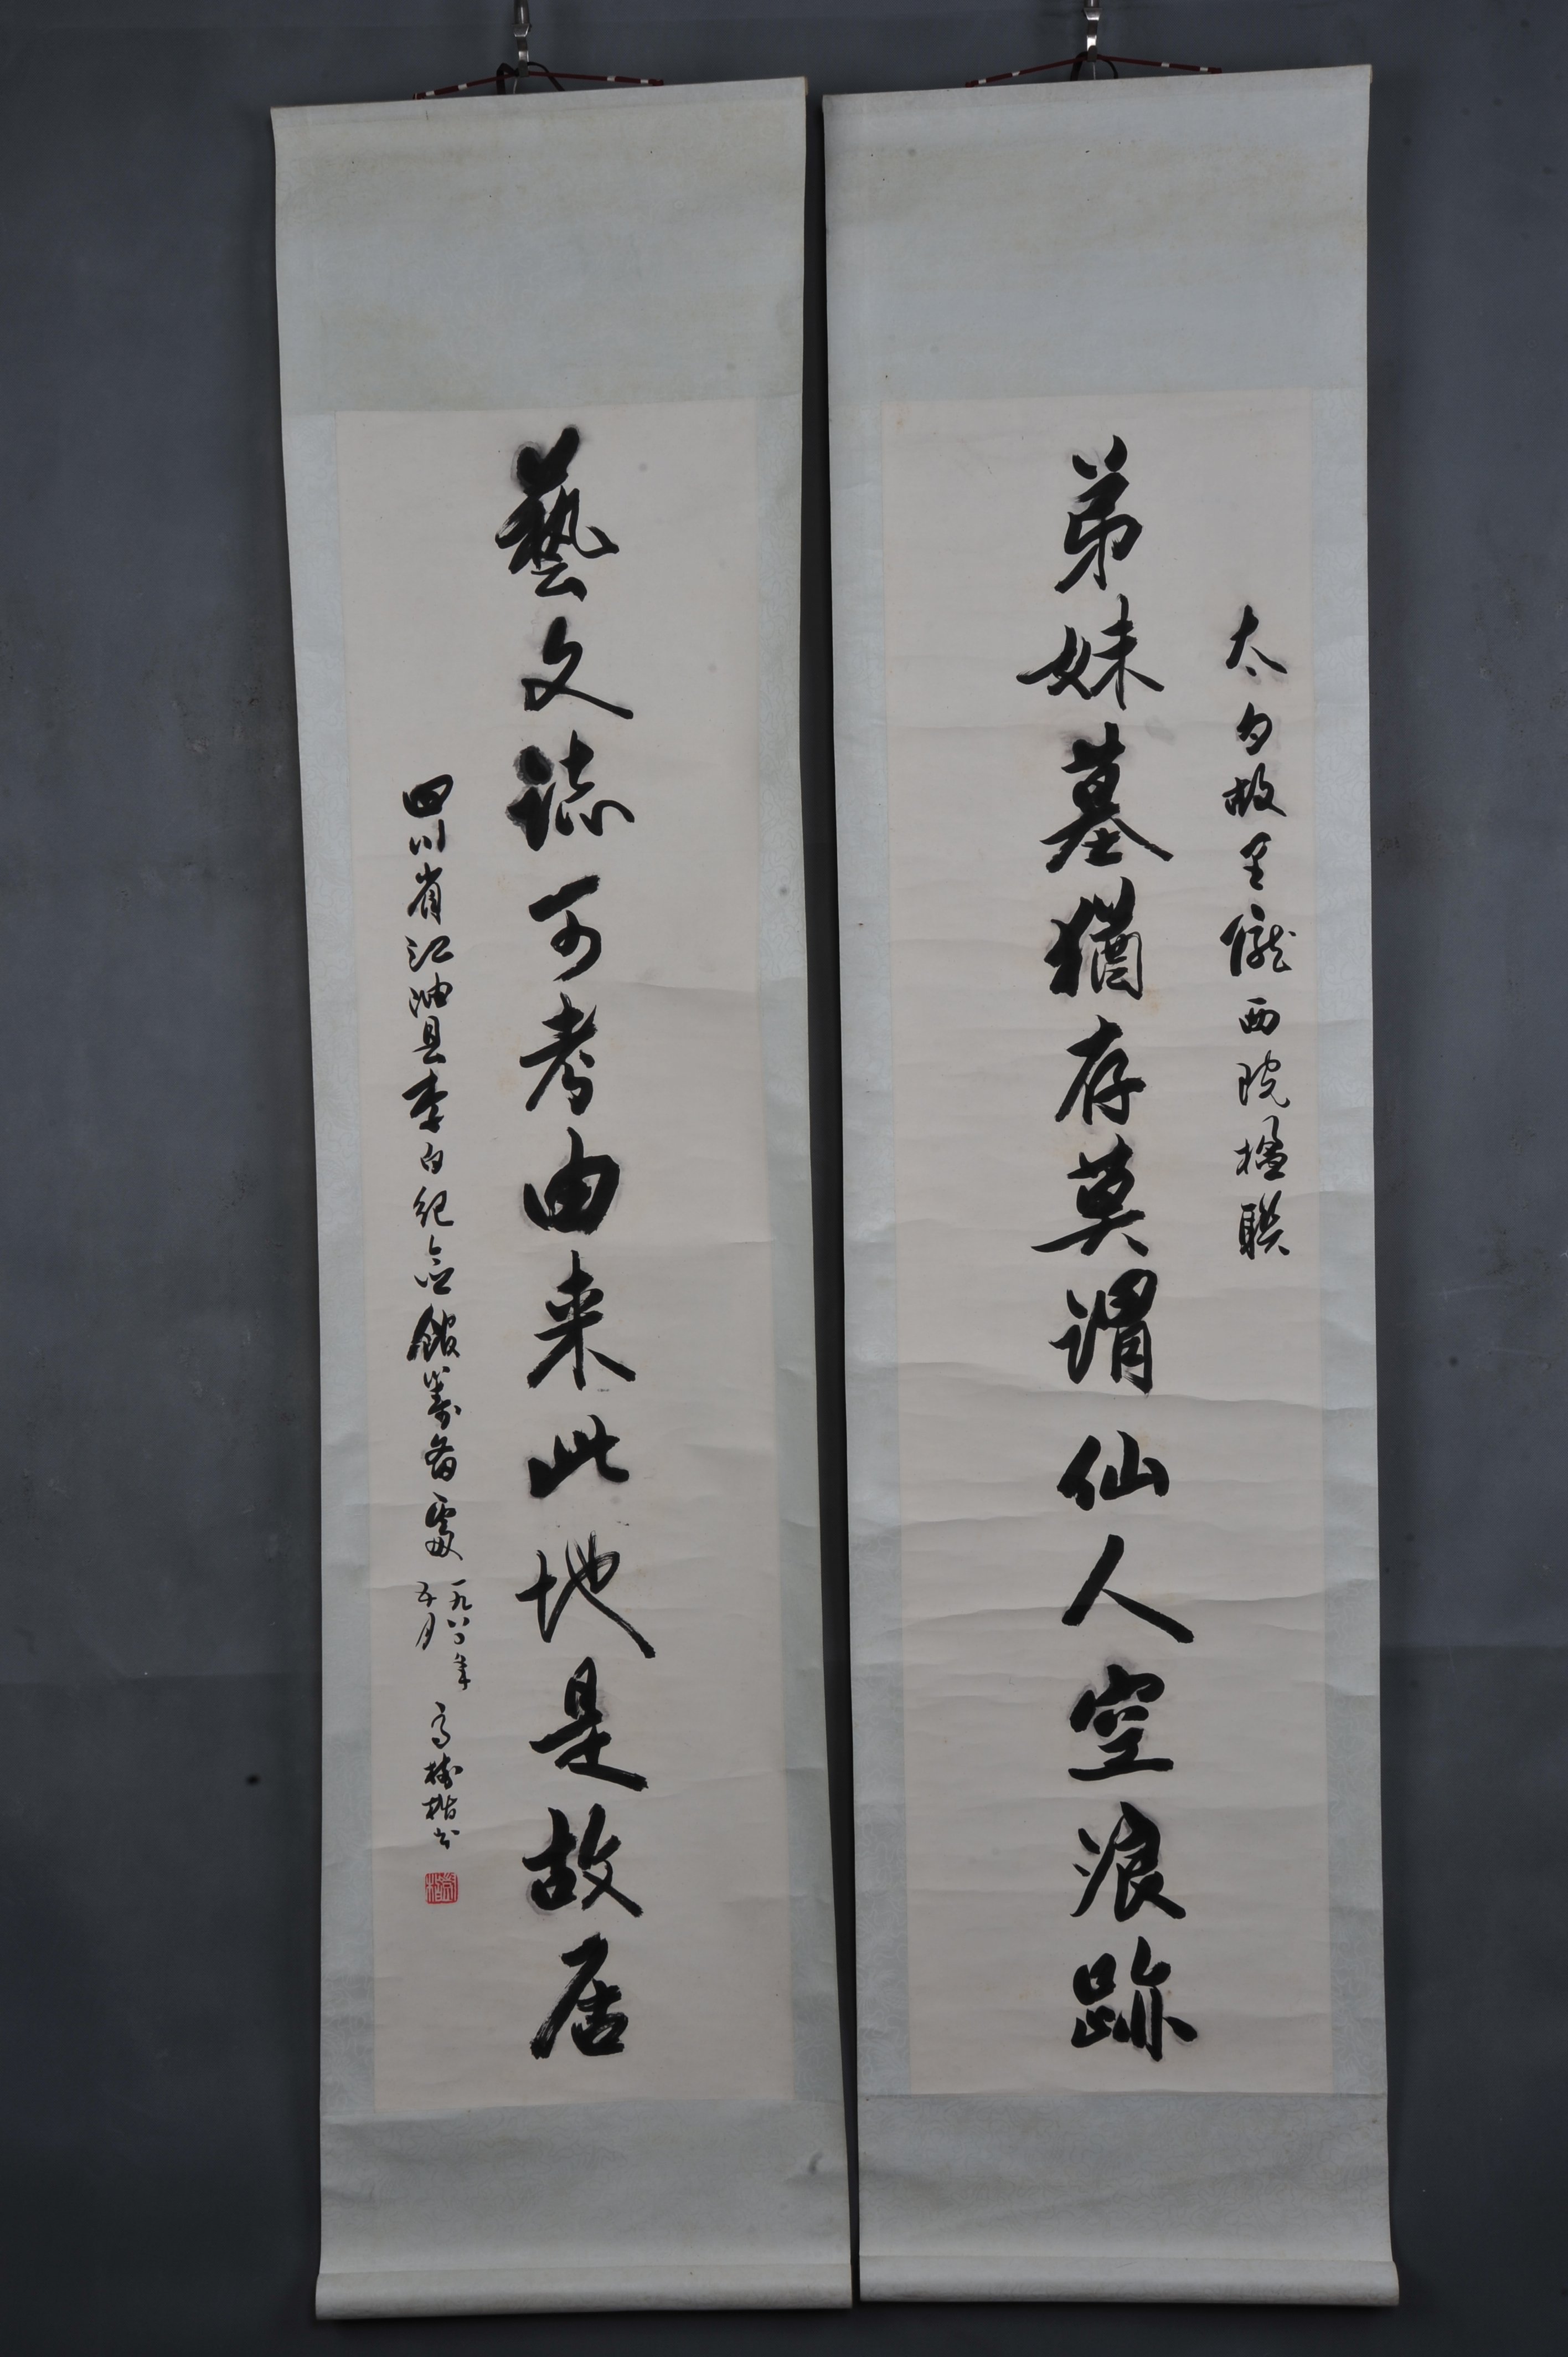 太白故里隴西院楹联
弟妹墓猶存莫谓仙人空浪跡
藝文誌可考由来此地是故居
四川省江油县李白纪念館筹备處
一九八〇年
五月
高樹楷书